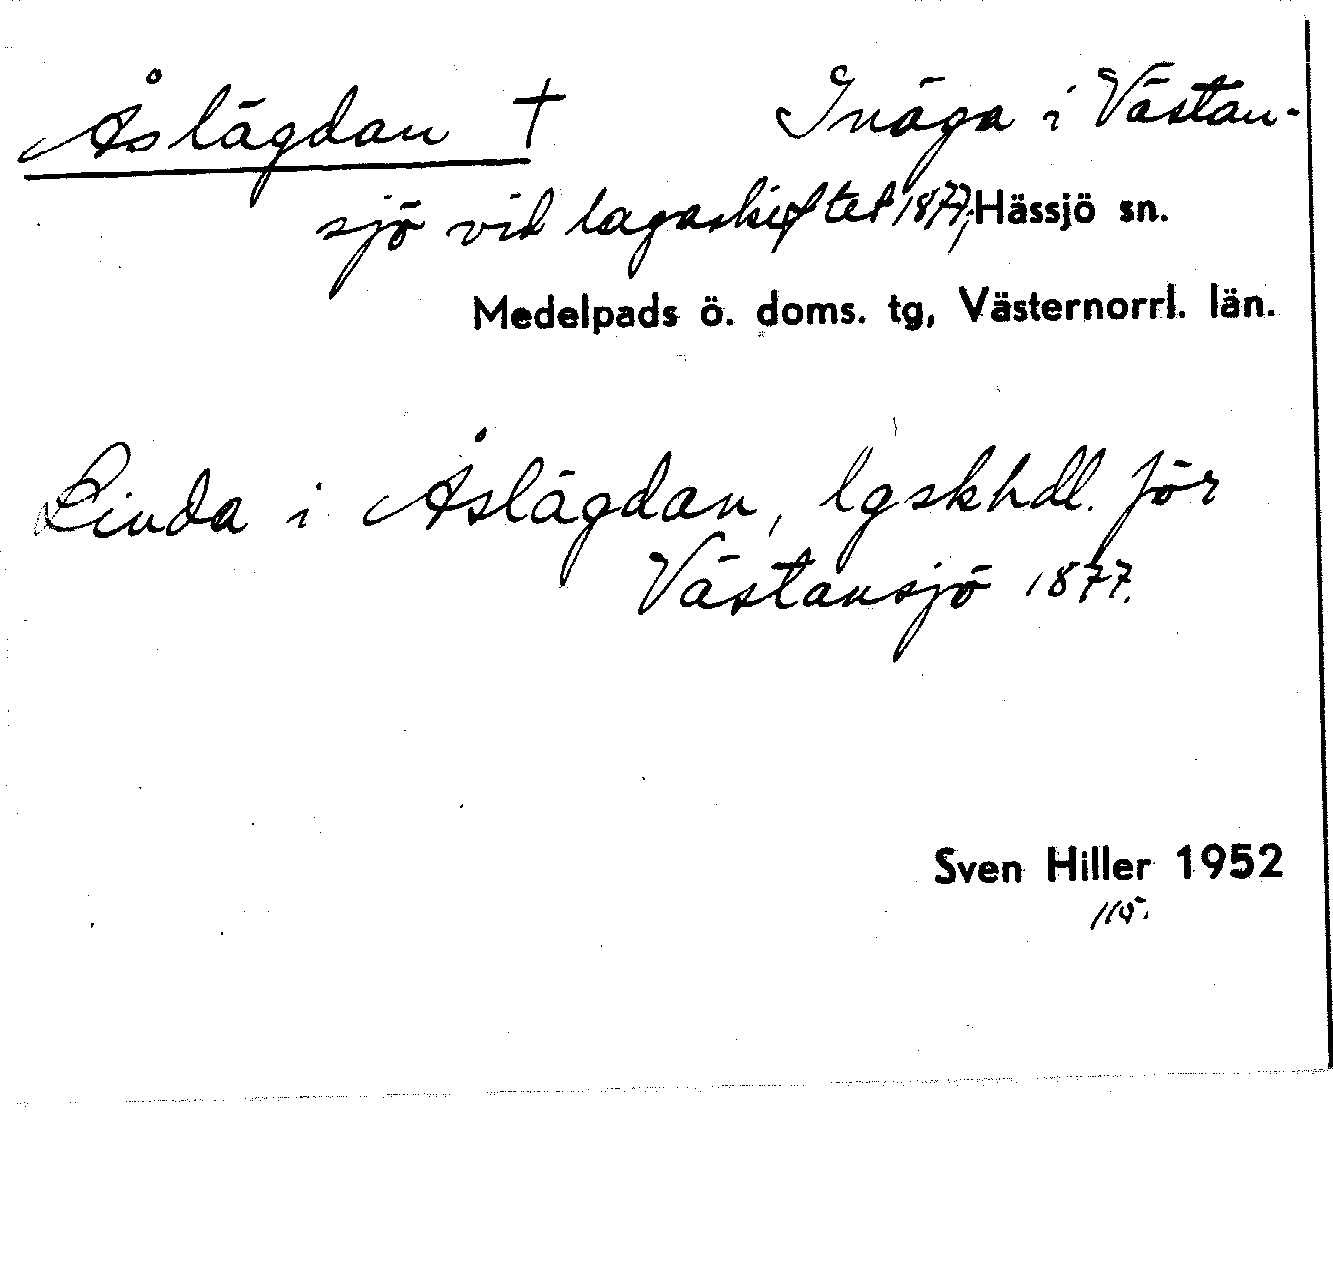 Åslägdan † Inäga i Västan-
sjö vid lagaskiftet 1877; Hässjö sn.
Medelpads ö. doms. tg, Västernorrl. län.
Linda i Åslägdan, lgskhdl. för
Västansjö 1877.
Sven Hiller 1952